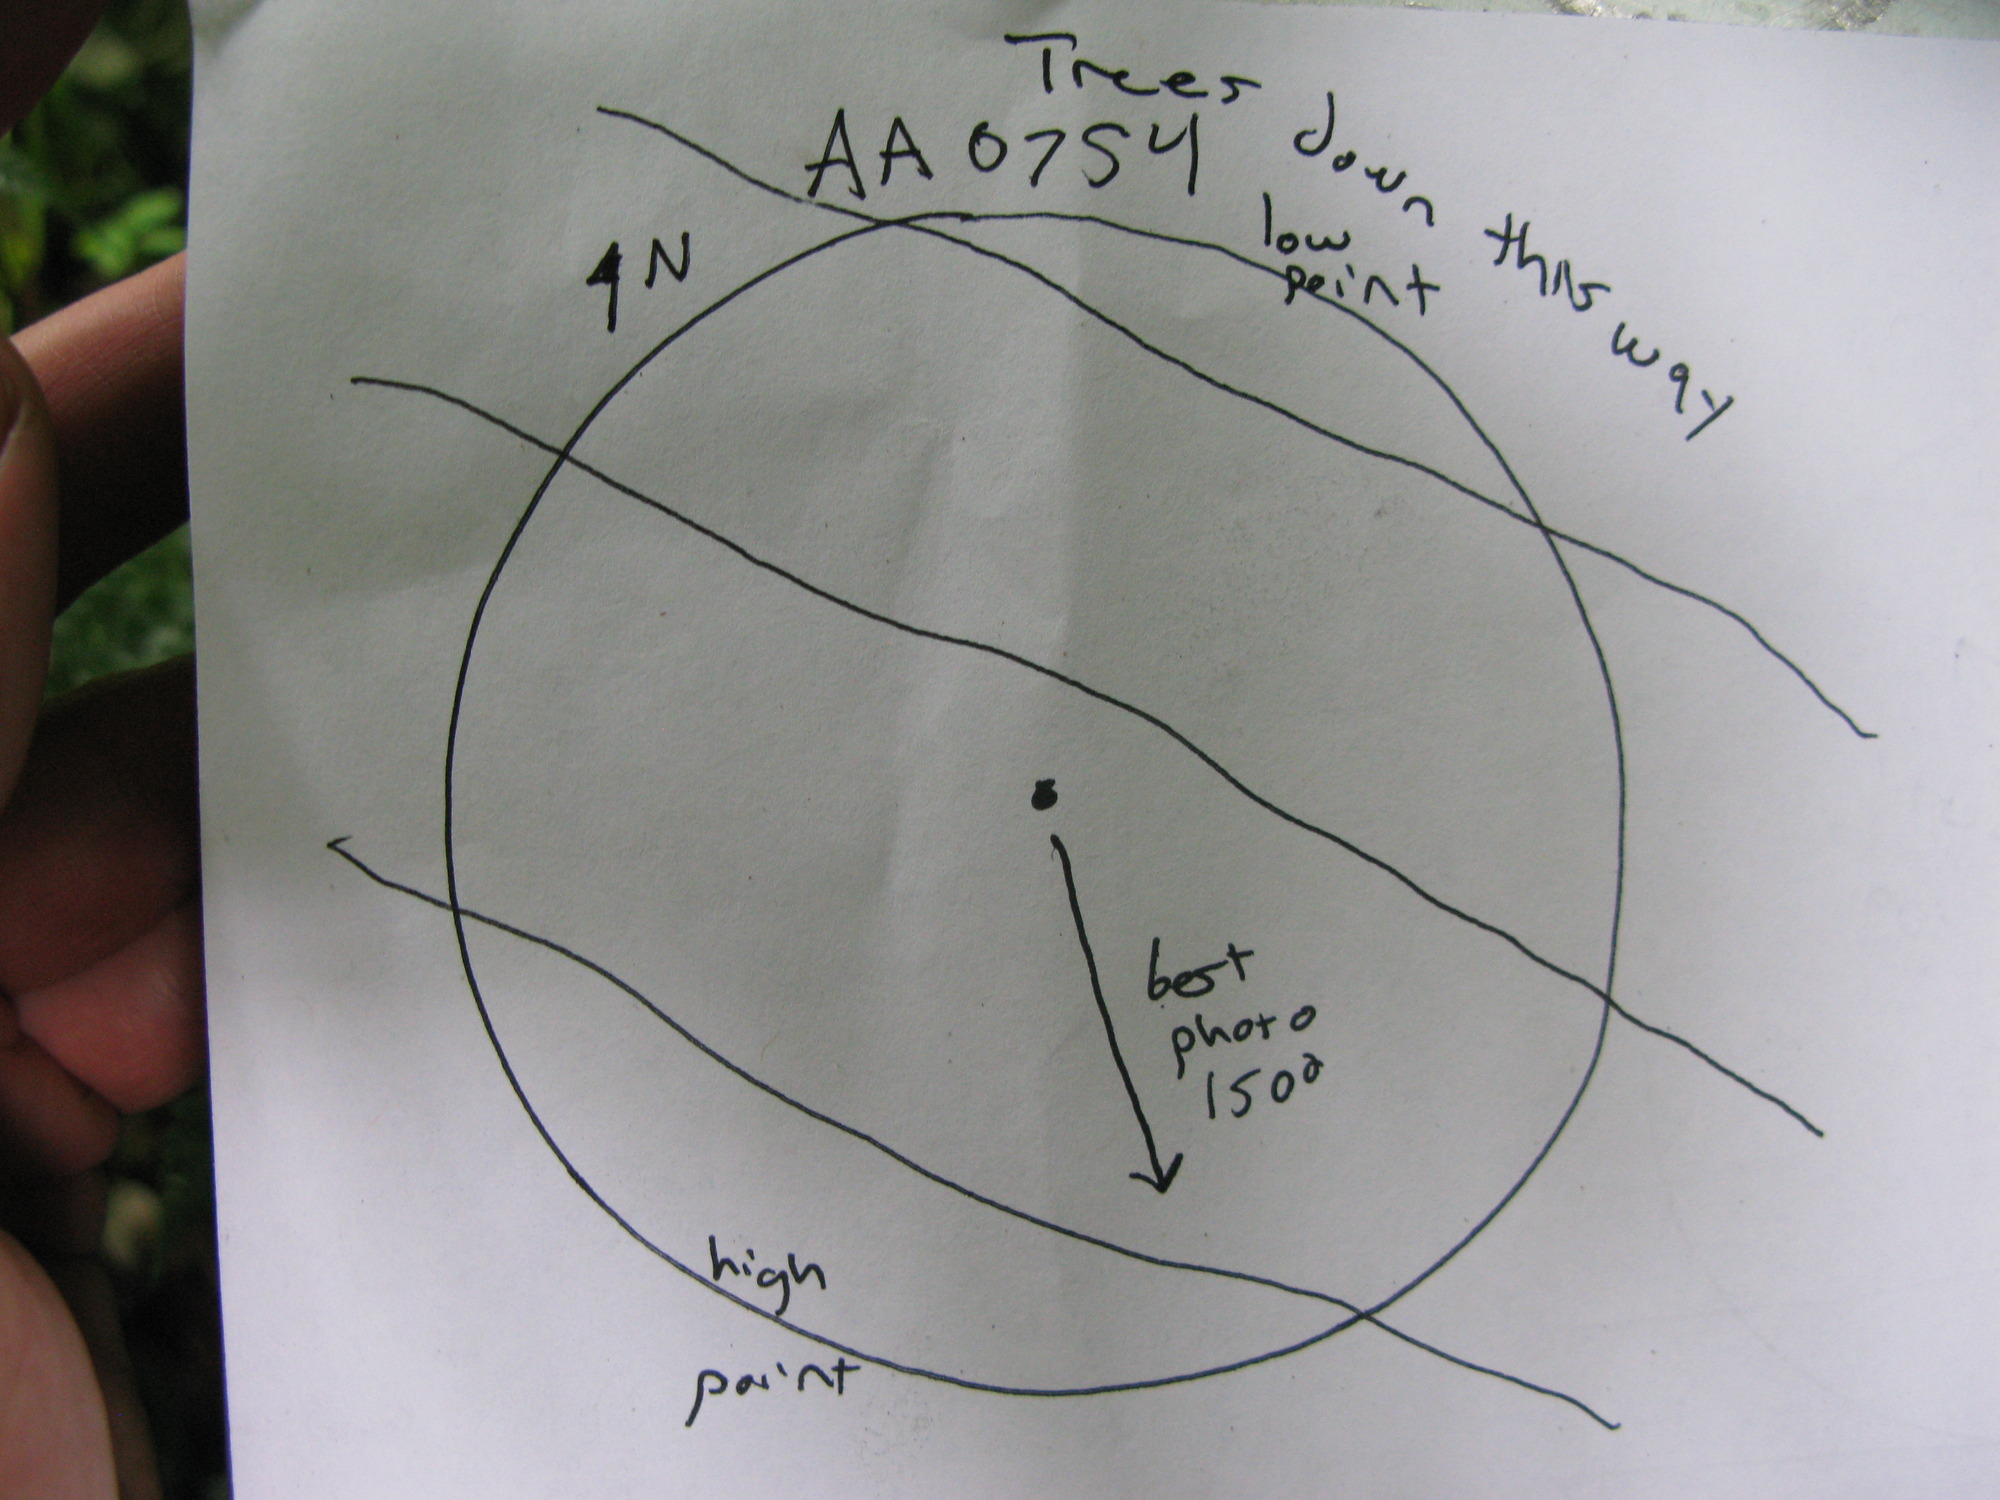 Trees down this way
AA 0754
N
low
point
best
photo
150°
high
point